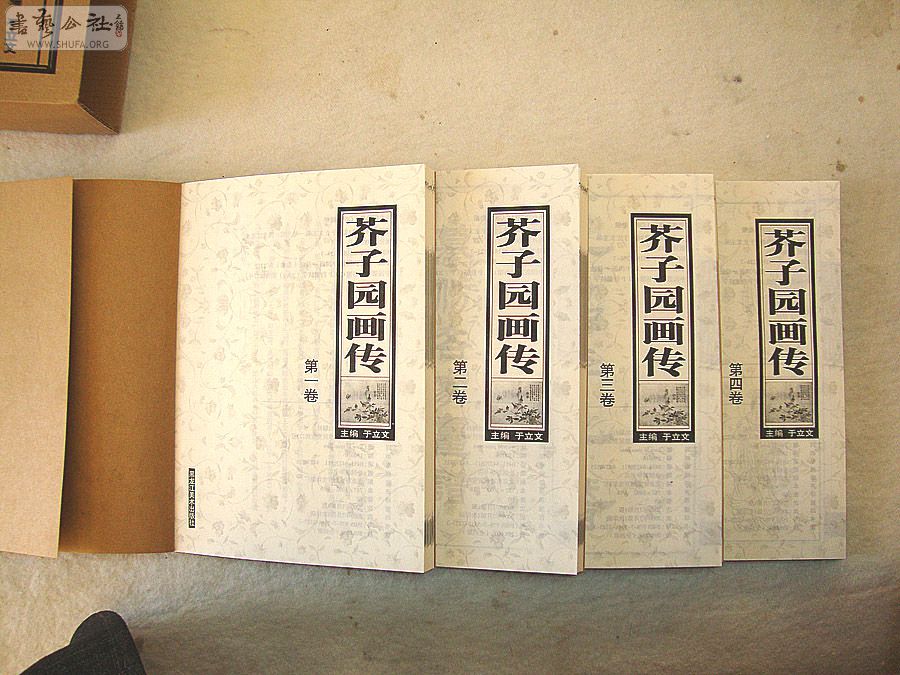 書藝公社
WWW.SHUFA.ORG
文
芥子园画传
第一卷
主编 于立文
黑龙江美术出版社
芥子园画传
第二卷
主编 于立文
芥子园画传
第三卷
主编 于立文
芥子园画传
第四卷
主编 于立文